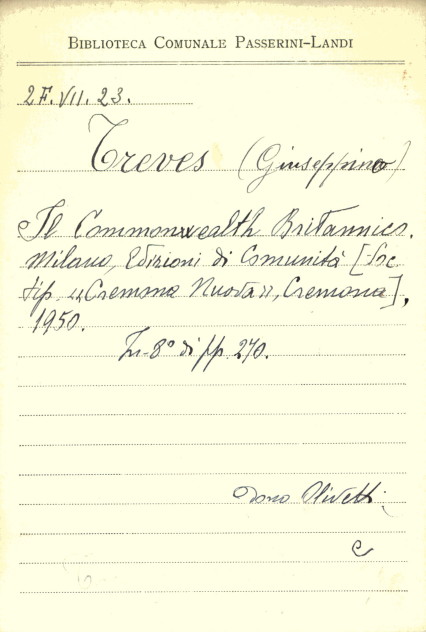 BIBLIOTECA COMUNALE PASSERINI-LANDI
2F.VII.23.
Treves (Giuseppino)
Il Commonwealth Britannico.
Milano, Edizioni di Comunità [Soc.
tip. "Cremona Nuova", Cremona],
1950.
In-8° di pp. 270.
Dono Olivetti